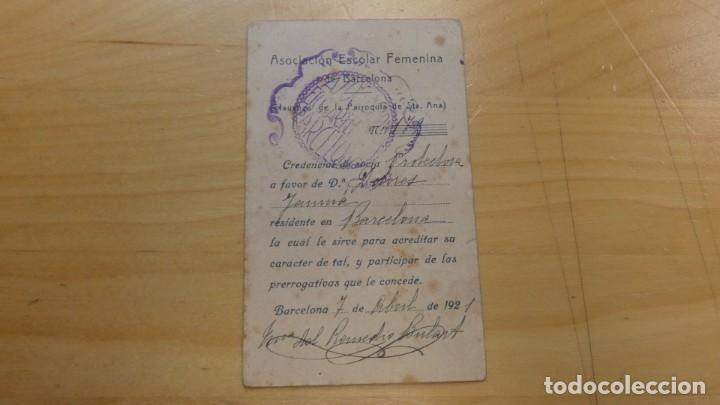 Asociación Escolar Femenina
de Barcelona
(Claustros de la Parroquia de Sta. Ana)
Núm. 173
Credencial de socia Protectora
a favor de D.ª Dolores
residente en Barcelona
la cual le sirve para acreditar su
caracter de tal, y participar de las
prerrogativas que le concede.
Barcelona 7 de Abril de 1921
del Remedio
todocoleccion.net